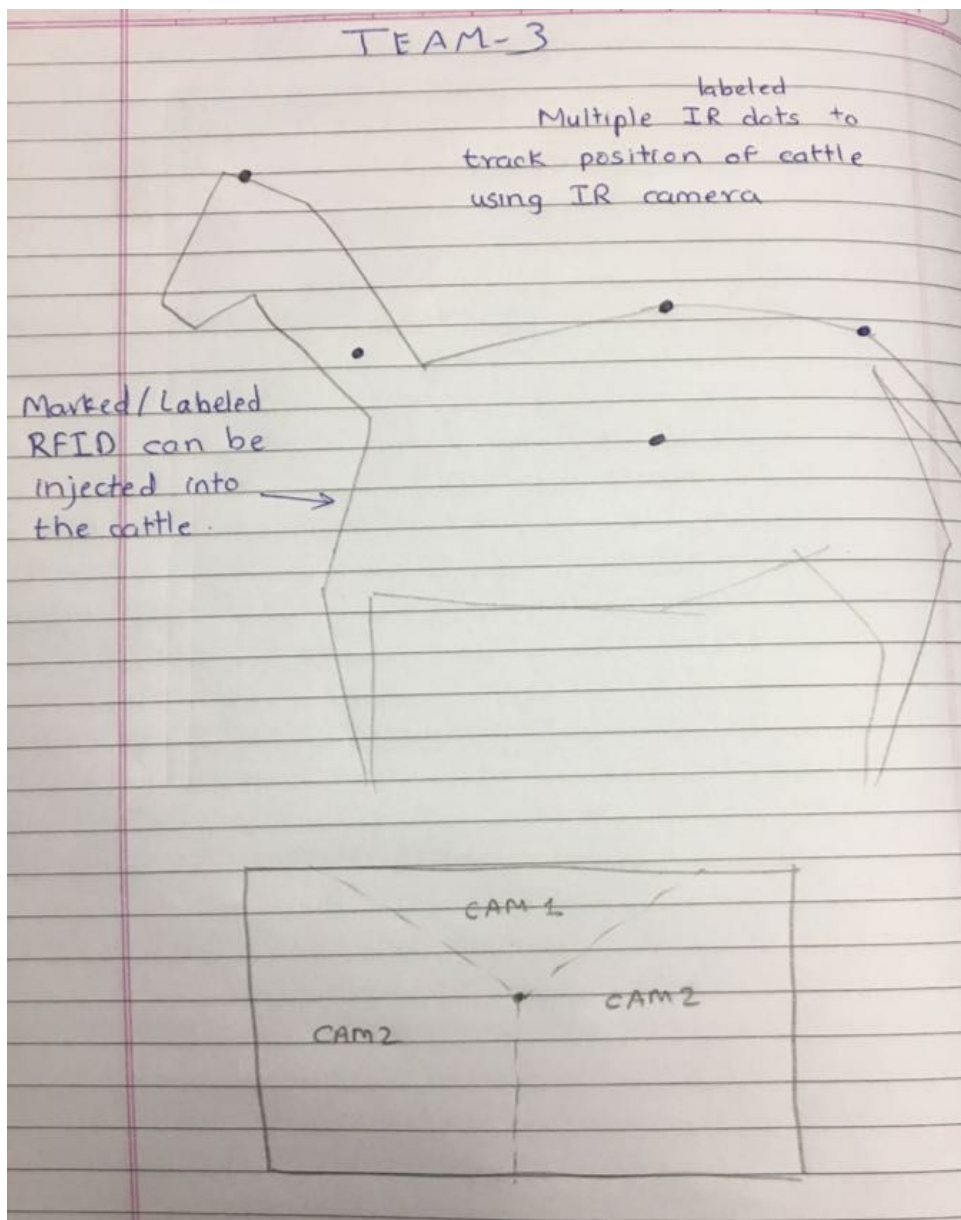 TEAM-3
labeled
Multiple IR dots to
track position of cattle
using IR camera
Marked/Labeled
RFID can be
injected into
the cattle.
CAM 1
CAM2
CAM2